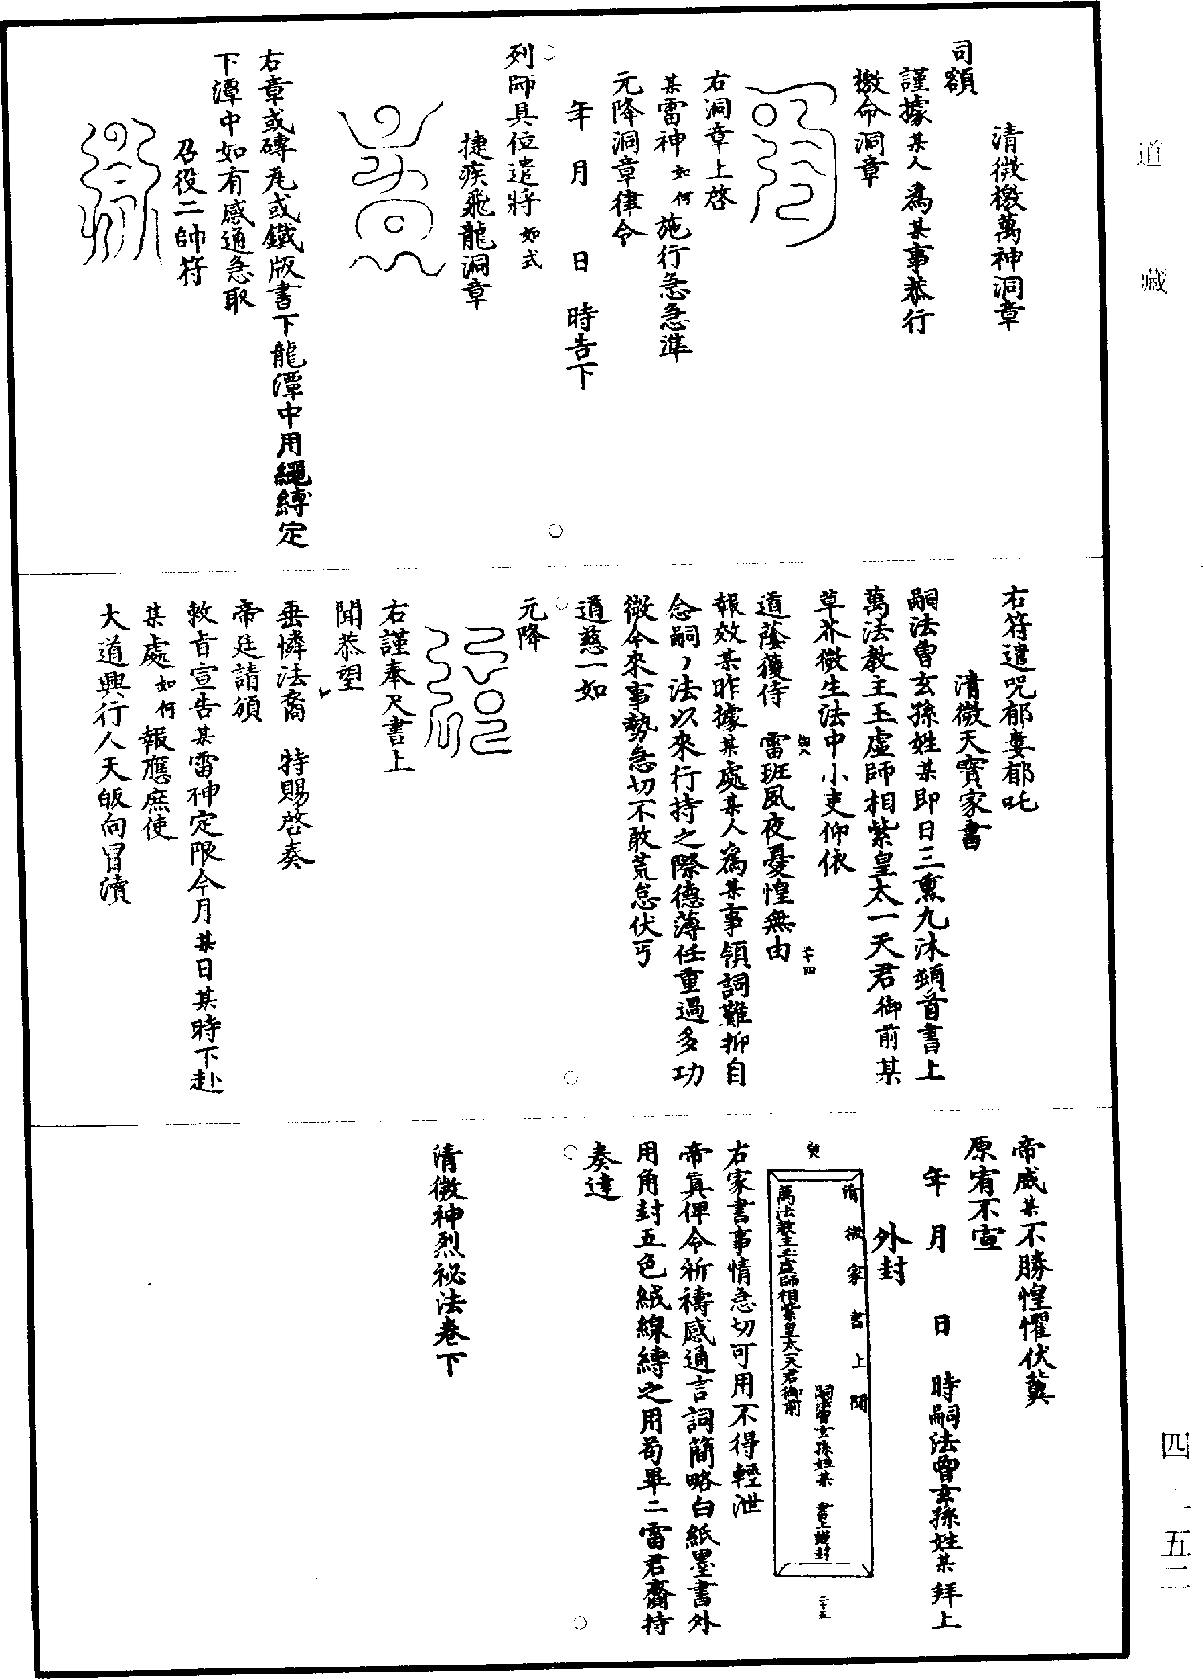 道藏
清微檄萬神洞章
司額
謹據某人為某事恭行
檄命洞章
右洞章上啓
某雷神如何施行急急準
元降洞章律令
年月日時告下
列師具位遣將如式
捷疾飛龍洞章
右章或磚瓦或鐵版書下龍潭中用繩縛定
下潭中如有感通急取
召役二帥符
右符遣咒郁婁郁吒
清微天寶家書
嗣法曾玄孫姓某即日三熏九沐頓首書上
萬法教主玉虛師相紫皇太一天君御前某
草芥微生法中小吏仰依
道蔭獲侍雷班夙夜憂惶無由
報效某昨據某處某人為某事領詞難抑自
念嗣法以來行持之際德薄任重過多功
微今來事勢急切不敢荒怠伏丐
道慈一如
元降
右謹奉尺書上
聞恭望
垂憐法裔特賜啓奏
帝廷請頒
敕旨宣告某雷神定限今月某日某時下赴
某處如何報應庶使
大道興行人天皈向冒瀆
帝威某不勝惶懼伏冀
原宥不宣
年月日時嗣法曾玄孫姓某拜上
外封
清微家書上聞
嗣法曾玄孫姓某書上謹封
萬法教主玉虛師相紫皇太一天君御前
二十五
右家書事情急切可用不得輕泄
帝真俾令祈禱感通言詞簡略白紙墨書外
用角封五色絨線縛之用苟畢二雷君齎持
奏達
清微神烈祕法卷下
四一五二